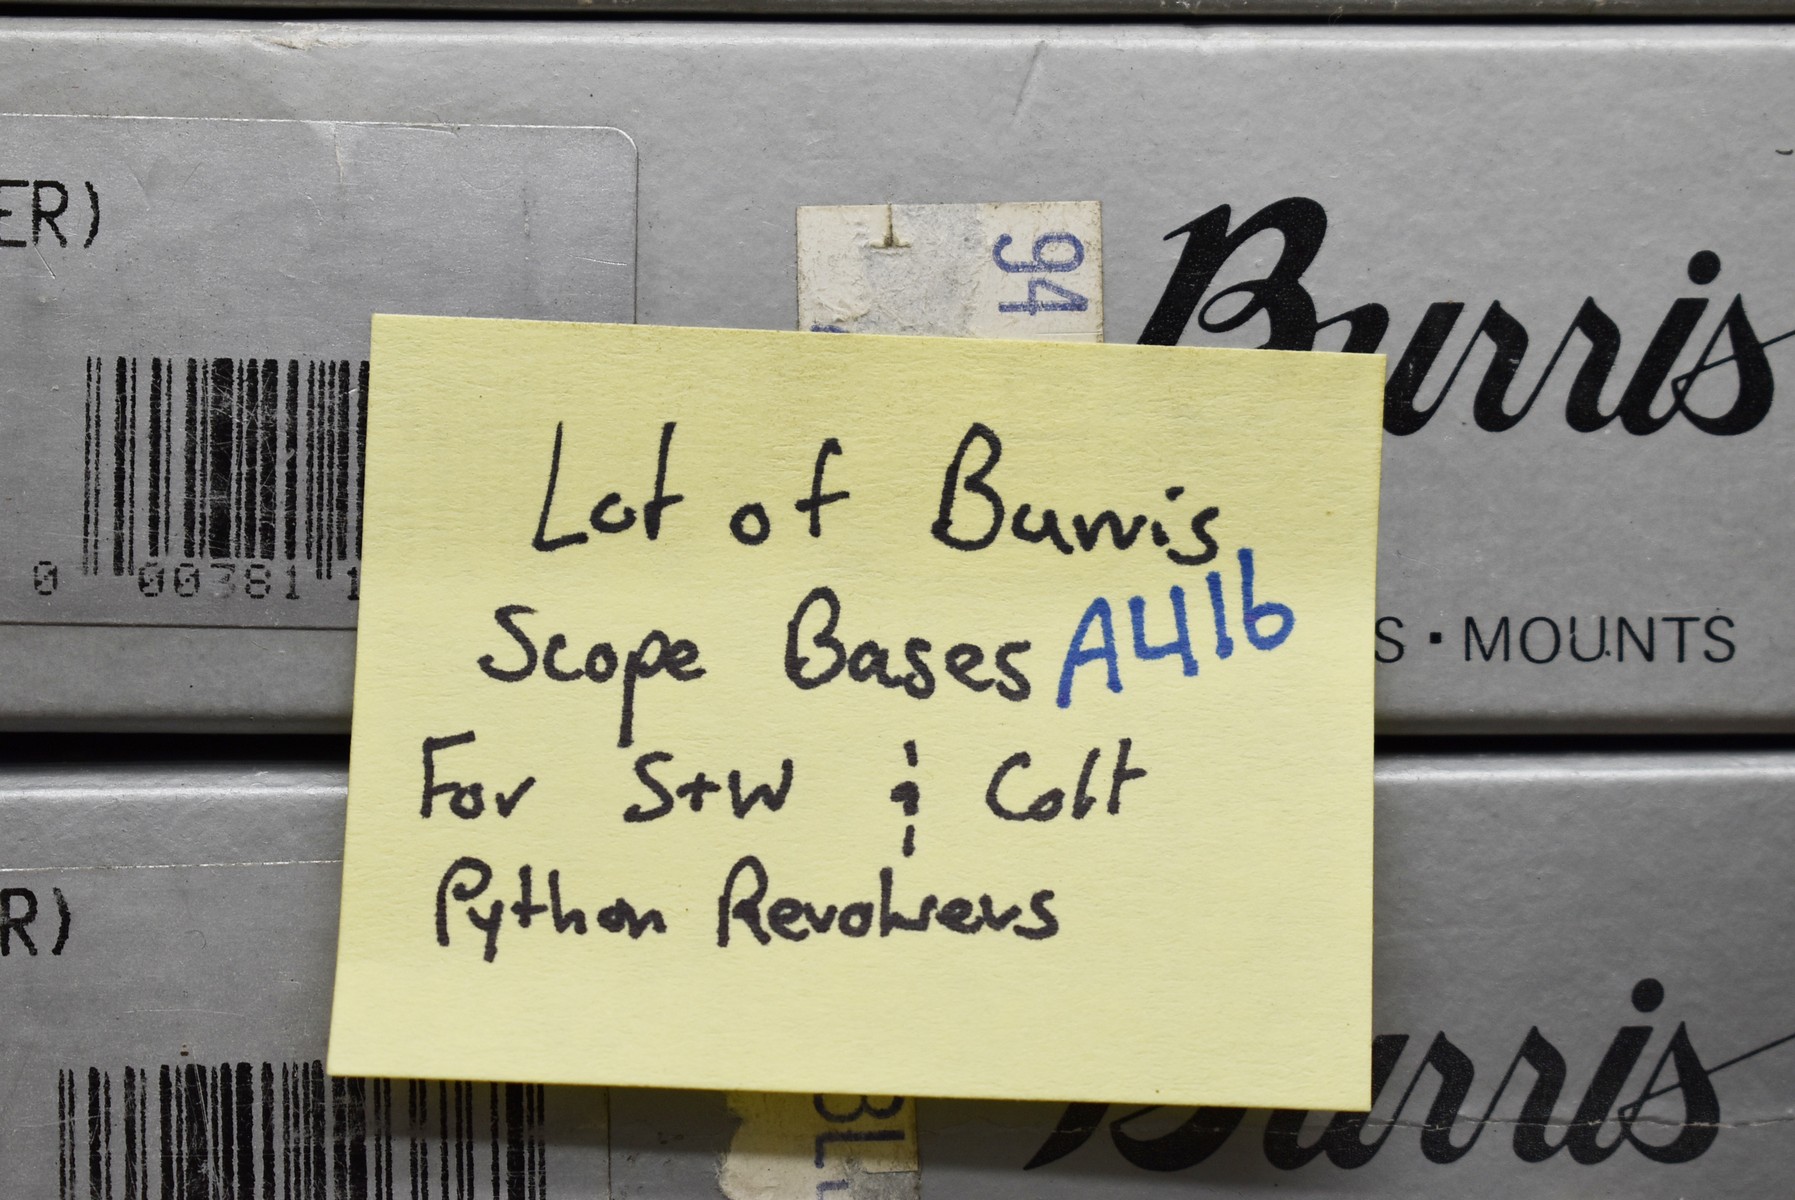 ER)
94
Burris
0 00381 1
Lot of Burris
Scope Bases A416
S · MOUNTS
For S+W & Colt
Python Revolvers
R)
Burris